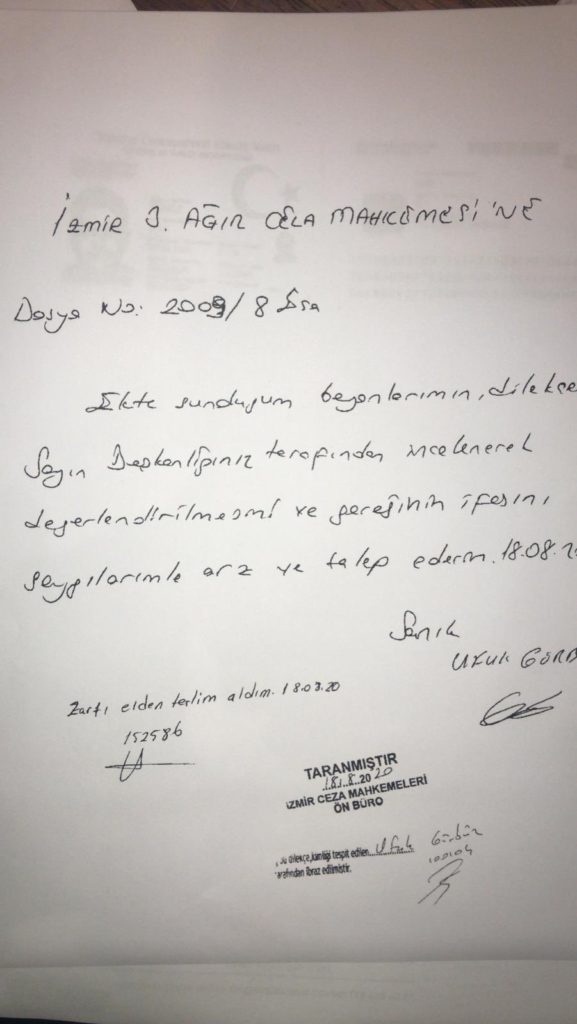 İZMİR 3. AĞIR CEZA MAHKEMESİ'NE
Dosya No: 2009/8 Esa
Ekte sunduğum beyanlarımın, dilekçe
Sayın Başkanlığınız tarafından incelenerek
değerlendirilmesmi ve gereğinin ifasını,
saygılarımla arz ve talep ederim. 18.08.2
Sanık
UFUK GÜRB
Zarfı elden teslim aldım. 18.08.20
152586
TARANMIŞTIR
18.8.2020
İZMİR CEZA MAHKEMELERİ
ÖN BÜRO
Bu dilekçe, kimliği tespit edilen Ufuk Gürbüz
tarafından ibraz edilmiştir.
100104